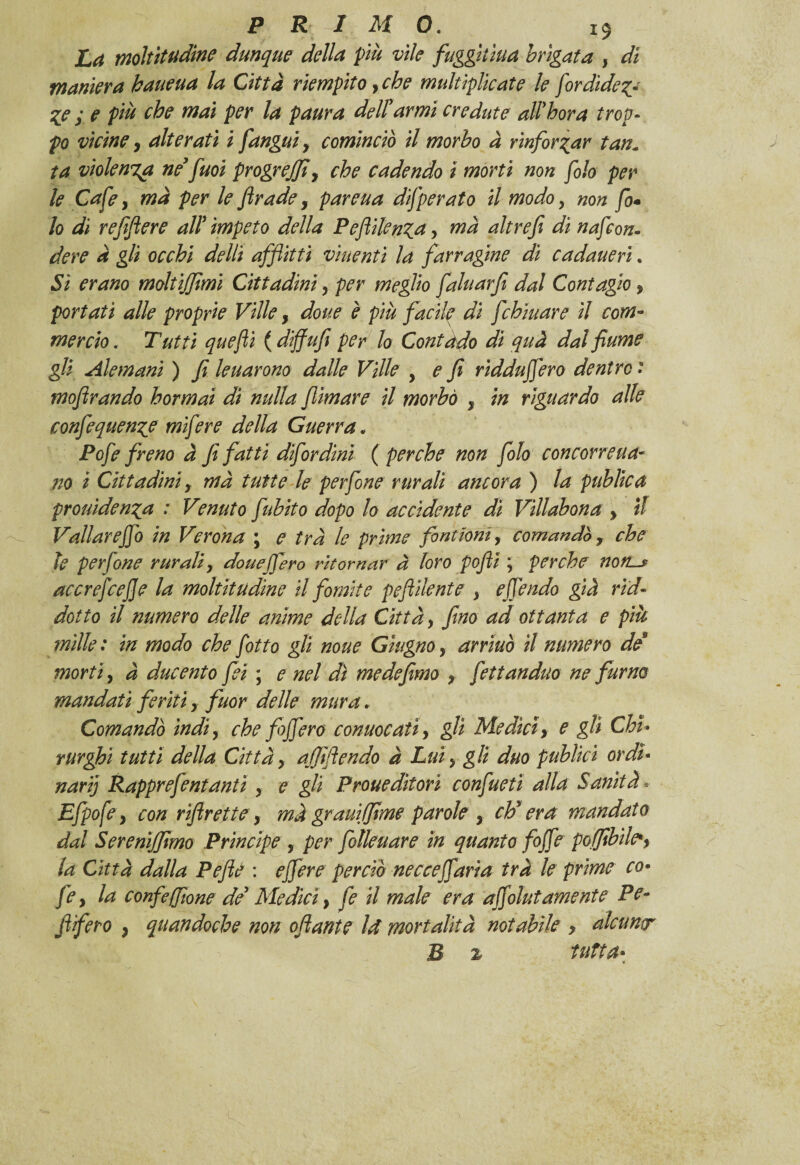 PRIMO. 19
La moltitudine dunque della più vile fuggitiua brigata, di
maniera haueua la Città riempito, che multiplicate le ſordidez-
ze; e più che mai per la paura dell'armi credute all'hora trop-
po vicine, alterati i ſangui, cominciò il morbo à rinforzar tan-
ta violenza ne' ſuoi progreſſi, che cadendo i morti non ſolo per
le Caſe, mà per le ſtrade, pareua diſperato il modo, non ſo-
lo di reſiſtere all'impeto della Peſtilenza, mà altreſi di naſcon-
dere à gli occhi delli afflitti viuenti la farragine di cadaueri.
Si erano moltiſſimi Cittadini, per meglio ſaluarſi dal Contagio,
portati alle proprie Ville, doue è più facile di ſchiuare il com-
mercio. Tutti queſti (diffuſi per lo Contado di quà dal fiume
gli Alemani) ſi leuarono dalle Ville, e ſi ridduſſero dentro:
moſtrando hormai di nulla ſtimare il morbo, in riguardo alle
conſequenze miſere della Guerra.
Poſe freno à ſi fatti diſordini (perche non ſolo concorreua-
no i Cittadini, mà tutte le perſone rurali ancora) la publica
prouidenza: Venuto ſubito dopo lo accidente di Villabona, il
Vallareſſo in Verona; e trà le prime fontioni, comandò, che
le perſone rurali, doueſſero ritornar à loro poſti; perche non
accreſceſſe la moltitudine il fomite peſtilente, eſſendo già rid-
dotto il numero delle anime della Città, ſino ad ottanta e più
mille: in modo che ſotto gli noue Giugno, arriuò il numero de'
morti, à ducento ſei; e nel dì medeſimo, ſettanduo ne furno
mandati feriti, fuor delle mura.
Comandò indi, che foſſero conuocati, gli Medici, e gli Chi-
rurghi tutti della Città, aſſiſtendo à Lui, gli duo publici ordi-
narij Rappreſentanti, e gli Proueditori conſueti alla Sanità.
Eſpoſe, con riſtrette, mà grauiſſime parole, ch'era mandato
dal Sereniſſimo Principe, per ſolleuare in quanto foſſe poſſibile,
la Città dalla Peſte: eſſere perciò necceſſaria trà le prime co-
ſe, la confeſſione de' Medici, ſe il male era aſſolutamente Pe-
ſtifero, quandoche non oſtante la mortalità notabile, alcuno
B 2 tutta-